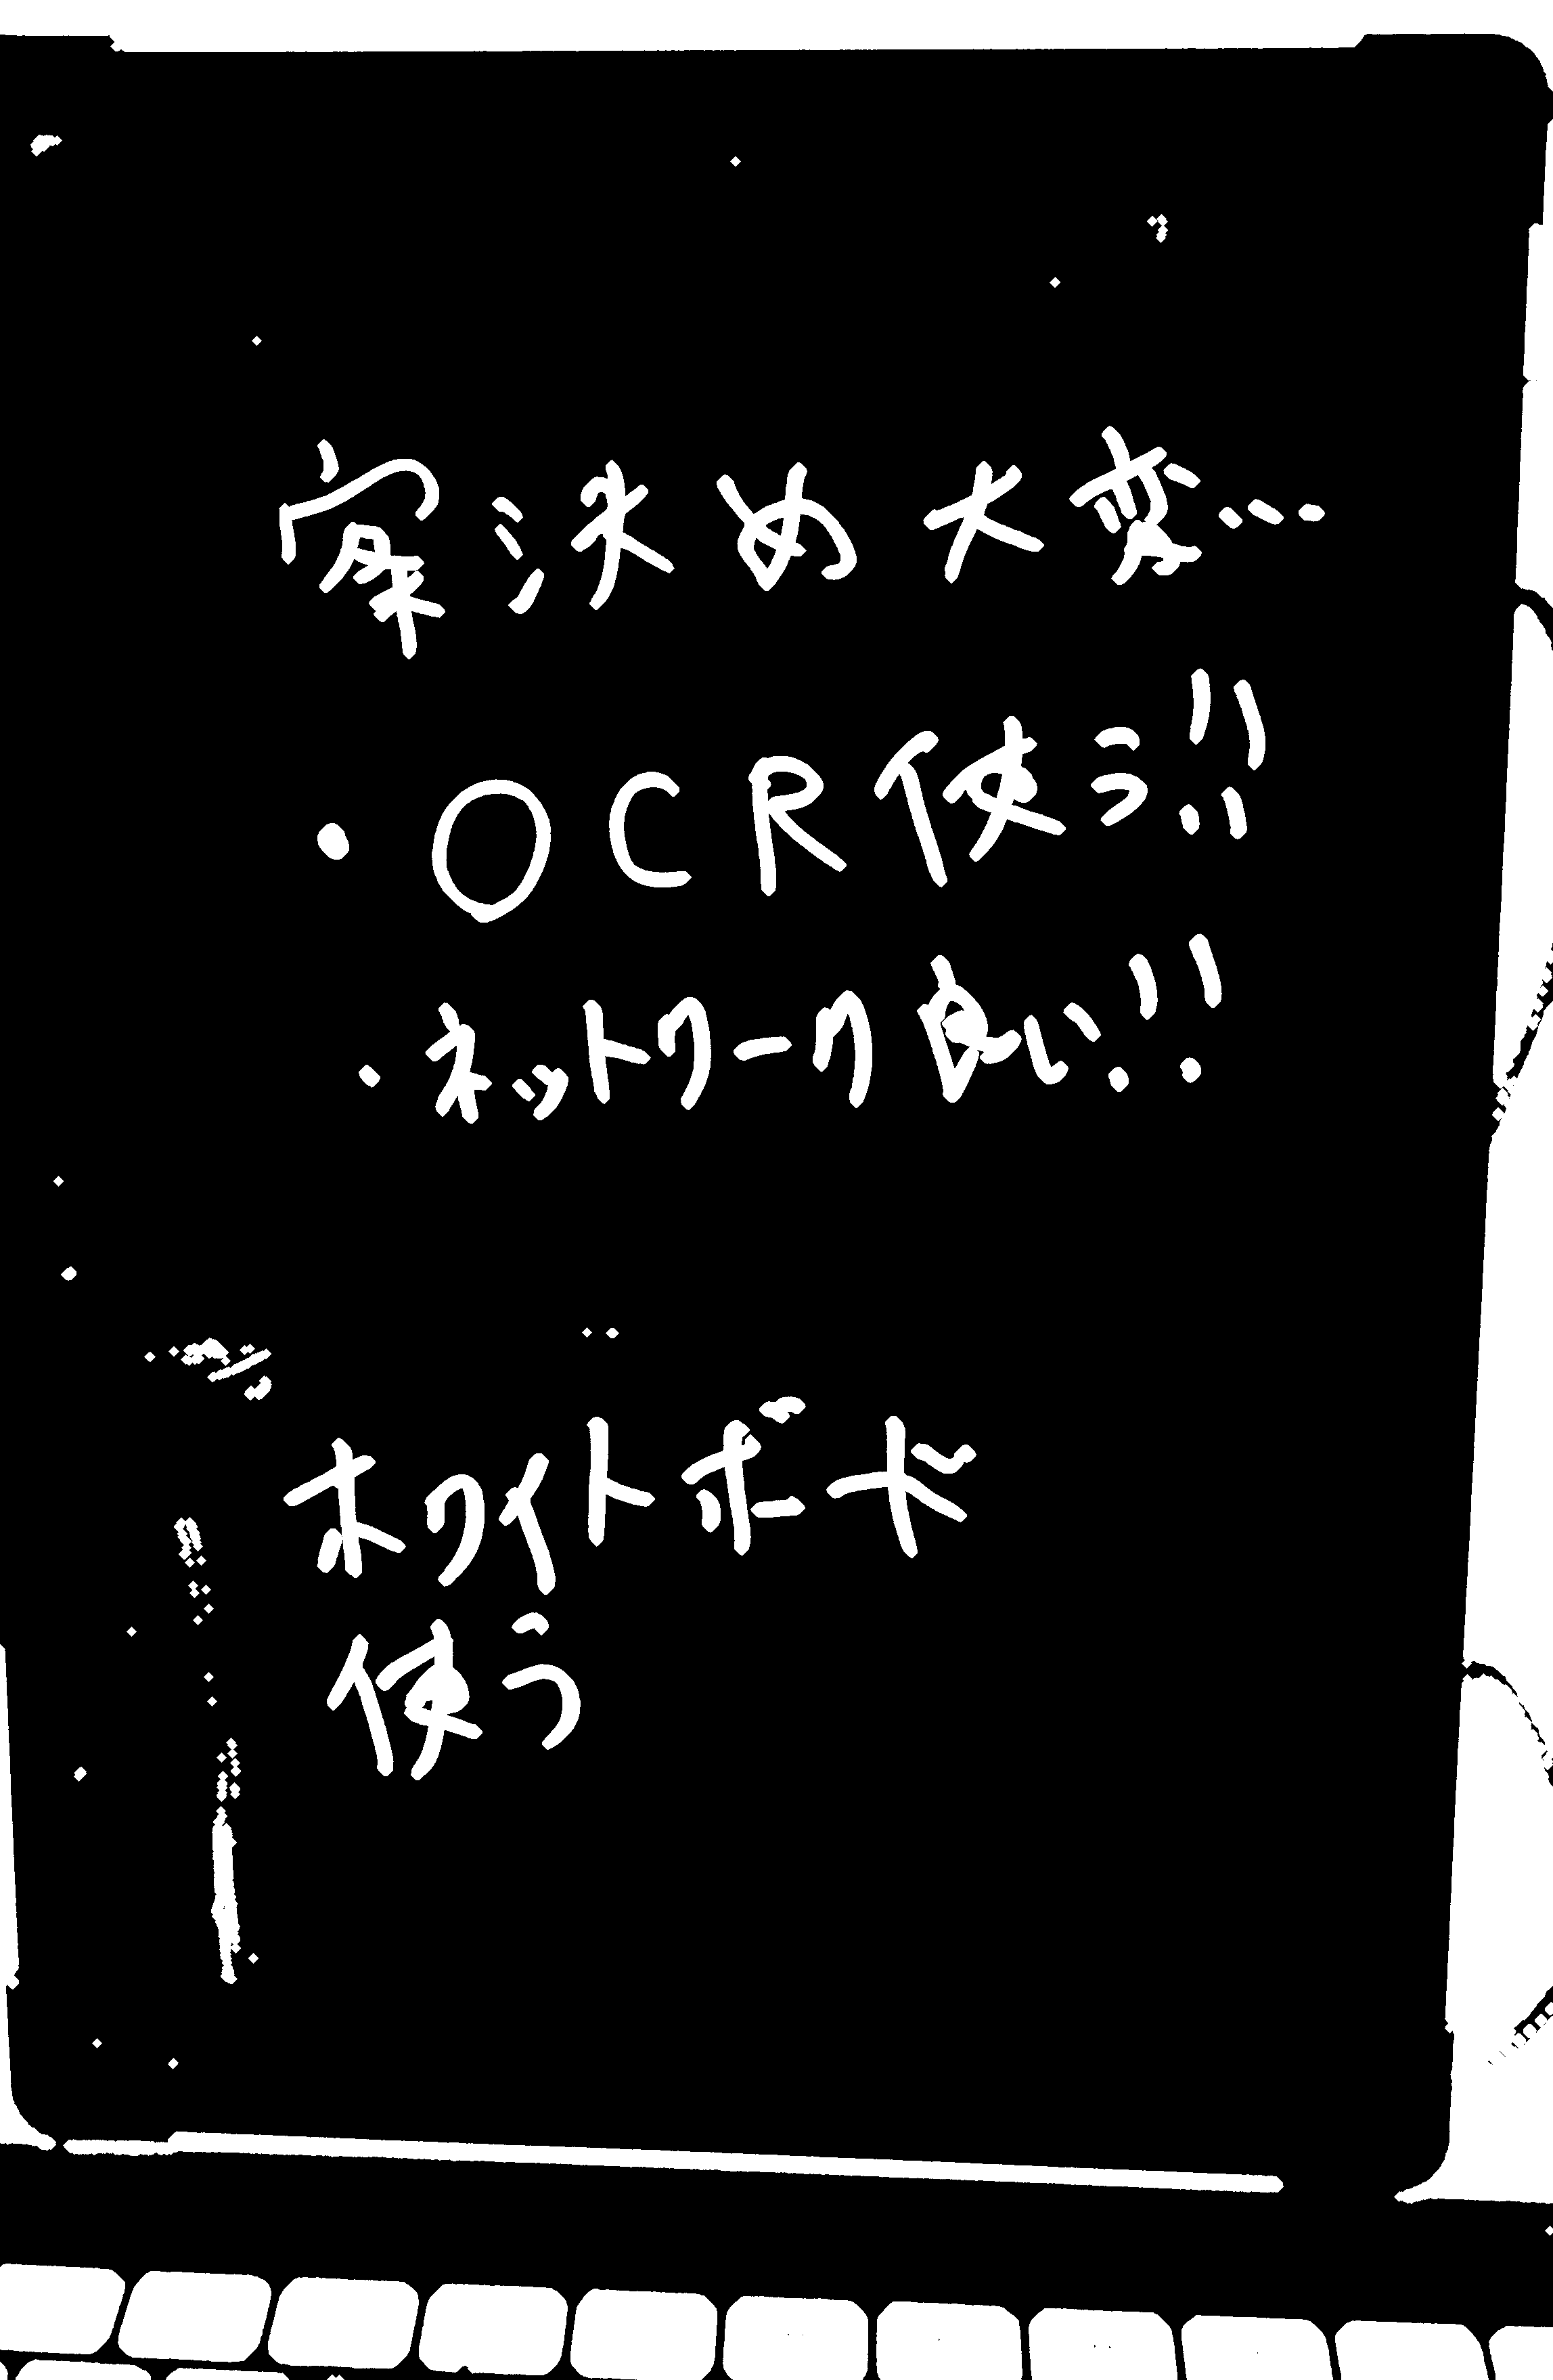 案決め大変…
・OCR使う!!
・ネットワーク良い!!
ホワイトボード
使う